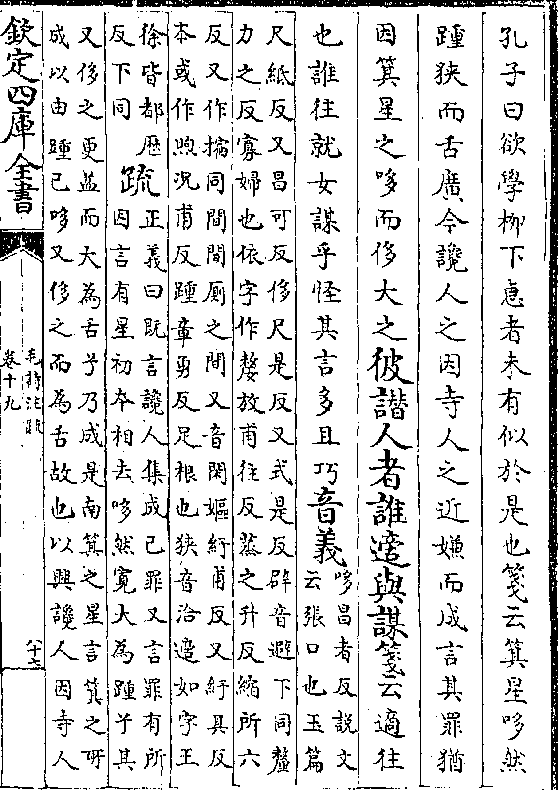 孔子曰欲學栁下恵者未有似於是也箋云箕星哆然
踵狹而舌廣今讒人之因寺人之近嫌而成言其罪猶
因箕星之哆而侈大之彼譖人者誰適與謀箋云適往
也誰往就女謀乎怪其言多且巧音義哆昌者反説文
云張口也玉篇
尺紙反又昌可反侈尺是反又式是反辟音避下同釐
力之反寡婦也依字作嫠放甫往反蒸之升反縮所六
反又作摍同間間厠之間又音閑嫗紆甫反又紆具反
本或作煦況甫反踵章勇反足根也狹音洽適如字王
徐皆都歴
反下同疏正義曰既言讒人集成已罪又言罪有所
因言有星初本相去哆然寛大為踵予其
又侈之更益而大為舌予乃成是南箕之星言箕之所
成以由踵已哆又侈之而為舌故也以興讒人因寺人
欽定四庫全書
毛詩注疏
卷十九